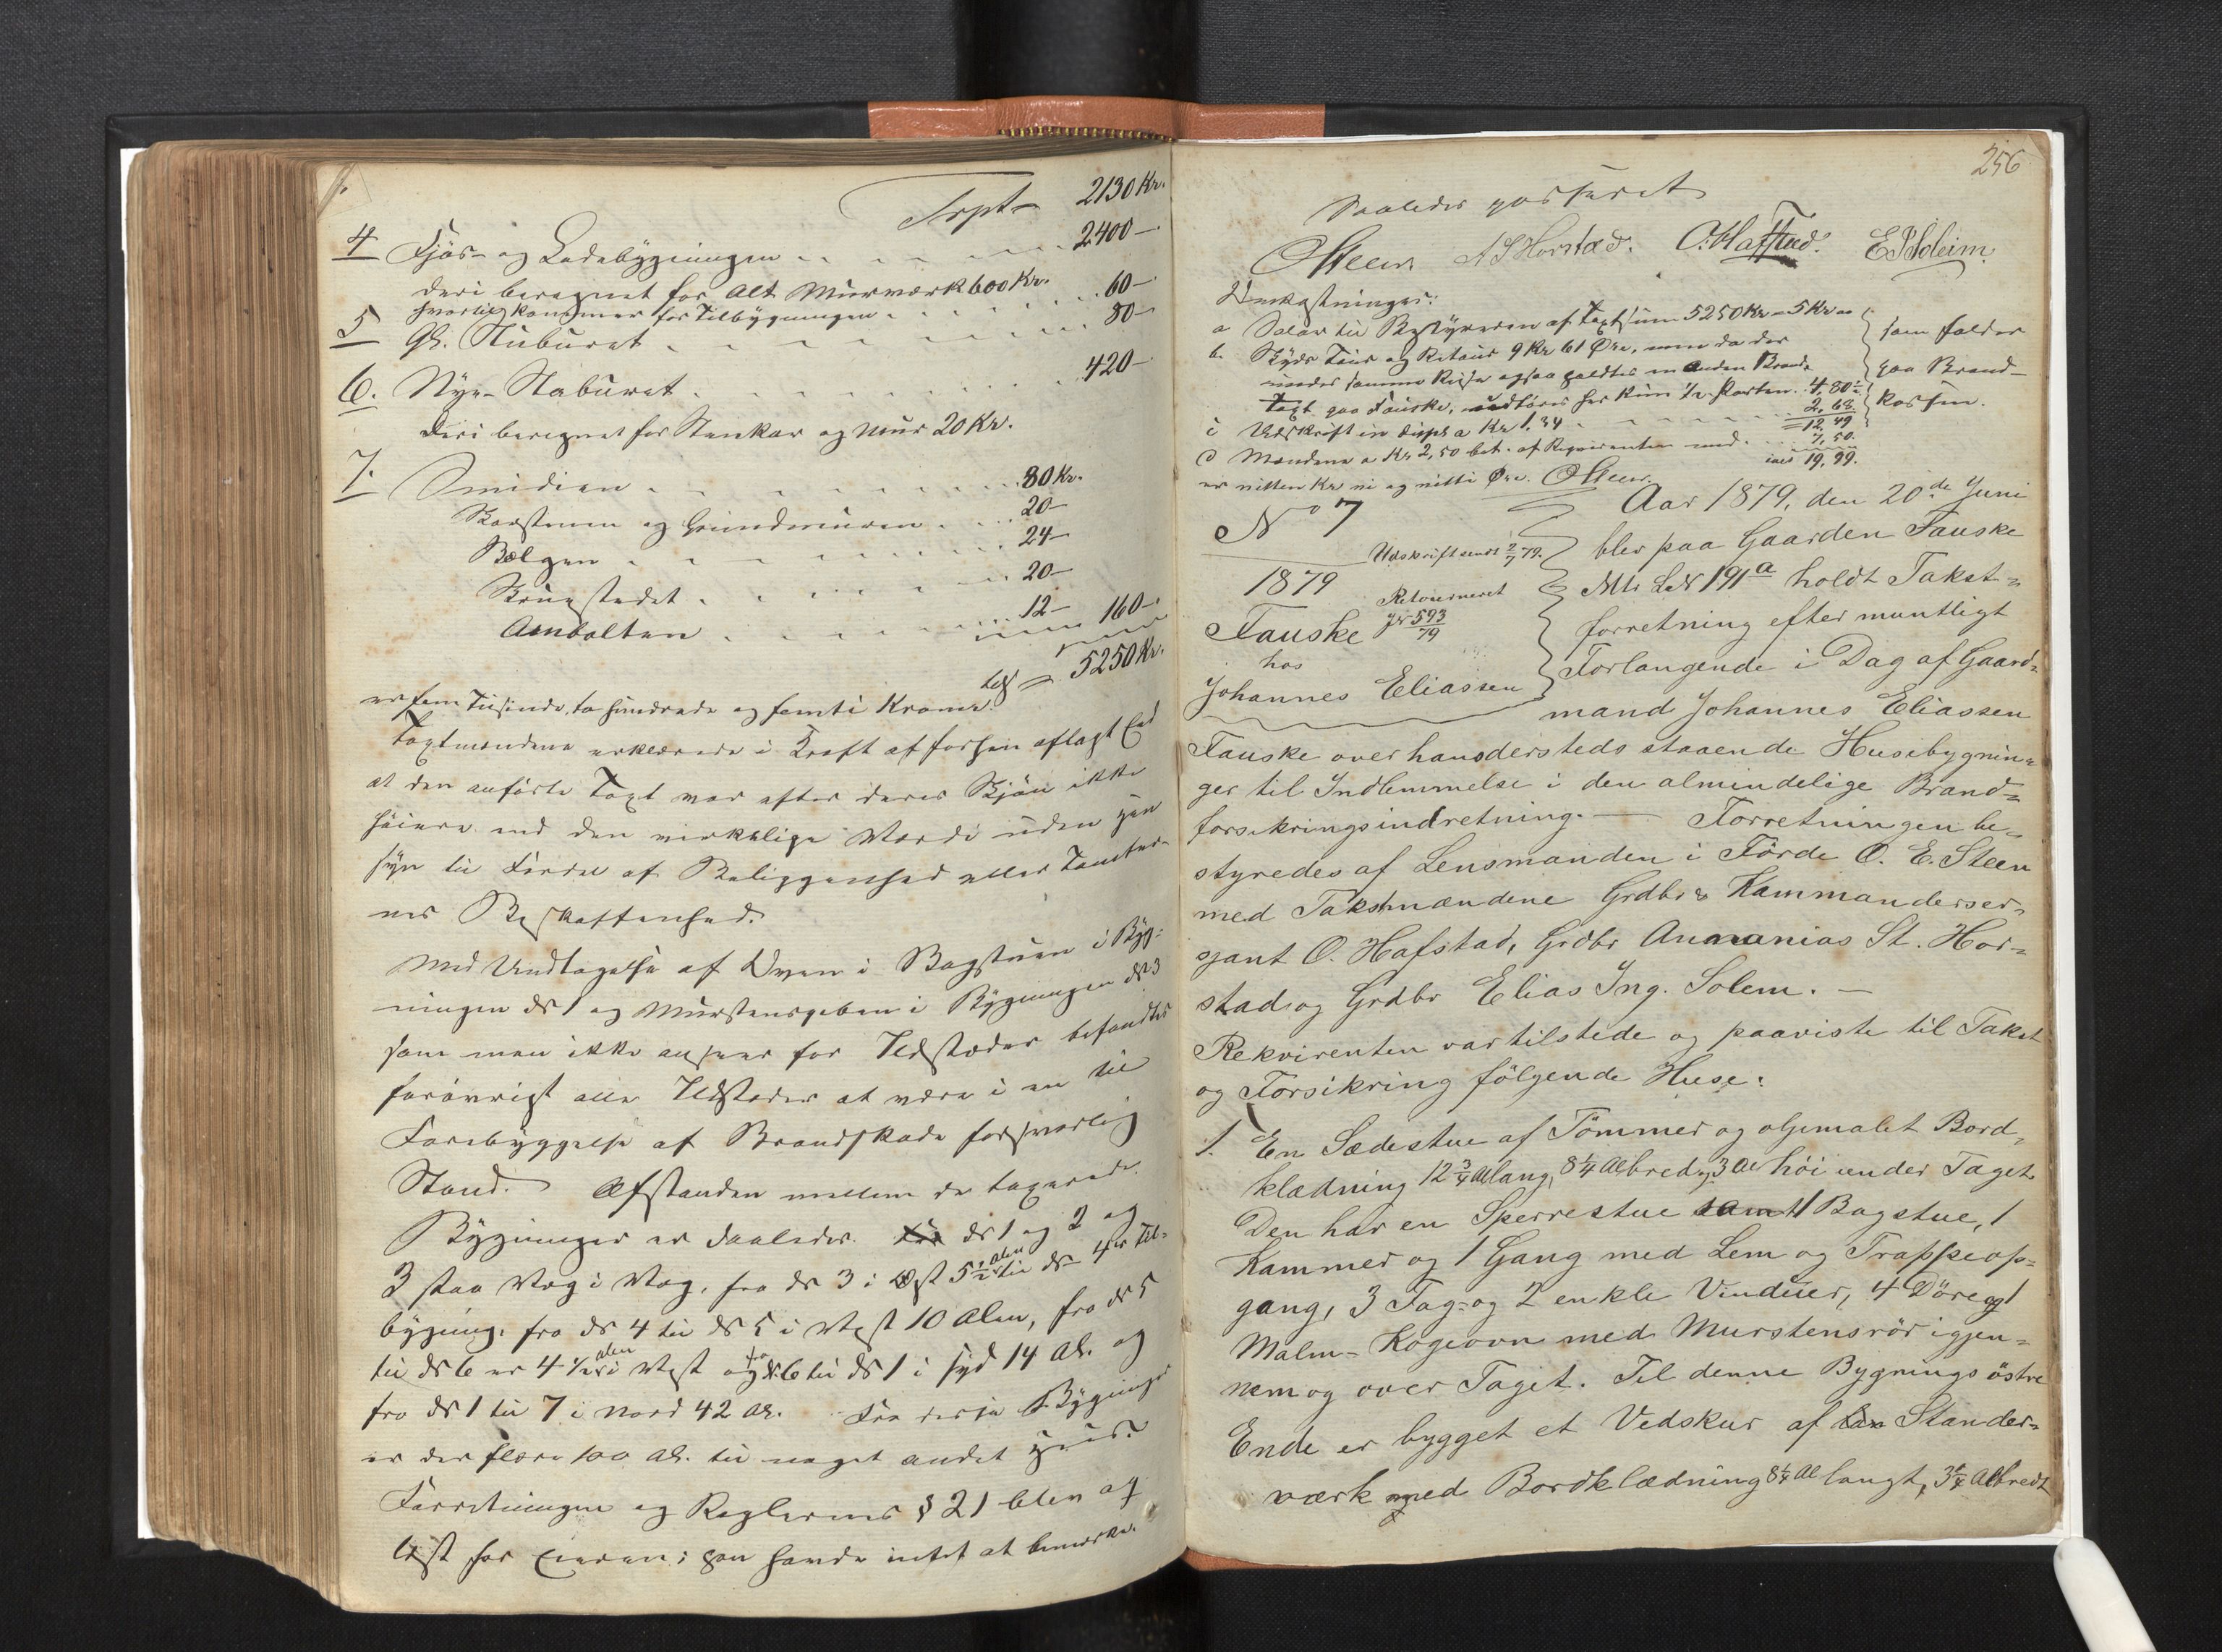 Trspt- 2130 Kr.
4 Fjös- og Ladebygningen 2400 –
deri beregnet for alt Murværk 600 Kr.
hvortil kommer for Tilbygningen 60 –
5 Gl. Stuburet 80 –
6. Nye- Staburet 420 –
deri beregnet for Stenkar og Mur 20 Kr.
7. Smidien 80 Kr.
Skorstenen og Grundmuren 20 –
Bælgen 24 –
Skruestedet 20 –
Ambolten 12 – 160 –
5250 Kr.
er fem Tusinde, to hundrede og femti Kroner.
Taxtmændene erklærede i Kraft af forhen aflagt Eed
at den anförte Taxt var efter deres Skjön ikke
höiere end den virkelige Værdi uden Hen
syn til Fordel af Beliggenhed eller Tomter-
nes Beskaffenhed.
Med Undtagelse af Ovnen i Bagstuen i Byg-
ningen No 1 og Murstenspiben i Bygningen No 3
som man ikke anser for Ildsteder befandtes
forövrigt alle Ildsteder at være i en til
Forebyggelse af Brandskade forsvarlig
Stand. Afstanden mellem de taxerede
Bygninger er saaledes: No 1 og 2 og
3 staa Væg i Væg, fra No 3 i Öst 5 1/2 Alen til No 4 er Til-
bygning, fra No 4 til No 5 i Vest 10 Alen, fra No 5
til No 6 er 4 1/2 Alen i Vest og fra No 6 til No 1 i Syd 14 Al. og
fra No 1 til 7 i Nord 42 Al. Fra disse Bygninger
er der flere 100 Al. til noget andet Huus.
Forretningen og Reglernes § 21 blev op
læst for Eieren; han havde intet at bemærke.
256
Saaledes passeret
OSteen. A S Horstad. O. Hafstad. E I Soleim.
Omkostninger:
a Salær til Bestyreren af Taxtsum 5250 Kr = 5 Kr
b. Skyds Tour og Retour 9 Kr 61 Øre, men da der
under samme Reise ogsaa holdtes en anden Brand-
Taxt paa Fauske, udföres her kun 1/2 Parten. 4,80 1/2
c Udskrift in duplo a Kr 1,34 2,68.
12,49
som falder
paa Brand-
kassen.
d Mændene a Kr 2,50 bet. af Rekvirenten med 7,50.
19,99.
er nitten Kr ni og nitti Øre. OSteen.
No 7
1879
Udskrift sendt 2/7 79.
Retourneret
Jr 593/79
Fauske
hos
Johannes Eliassen
Aar 1879, den 20de Juni
blev paa Gaarden Fauske
Mtr. L. No 191a holdt Takst-
forretning efter muntligt
Forlangende i Dag af Gaard-
mand Johannes Eliassen
Fauske over hansdersteds staaende Husebygnin-
ger til Indlemmelse i den almindelige Brand-
forsikringsindretning. — Forretningen be-
styredes af Lensmanden i Förde O. E. Steen
med Takstmændene Grdbr & Kammanderser-
sjant O. Hafstad, Grdbr Annanias St. Hor-
stad og Grdbr Elias Ing. Solem. —
Rekvirenten var tilstede og paaviste til Takst
og Forsikring fölgende Huse:
1. En Sædestue af Tömmer og oljemalet Bord-
klædning 12 3/4 Al lang, 8 1/4 Al bred og 3 Al höi under Taget.
Den har en Sperrestue samt 1 Bagstue, 1
Kammer og 1 Gang med Lem og Trappeop-
gang, 3 Fag- og 2 enkle Vinduer, 4 Döre og 1
Malm- Kogeovn med Murstensrör igjen-
nem og over Taget. Til denne Bygnings östre
Ende er bygget et Vedskur af Stander-
værk med Bordklædning 8 1/4 Al langt, 3 3/4 Al bredt